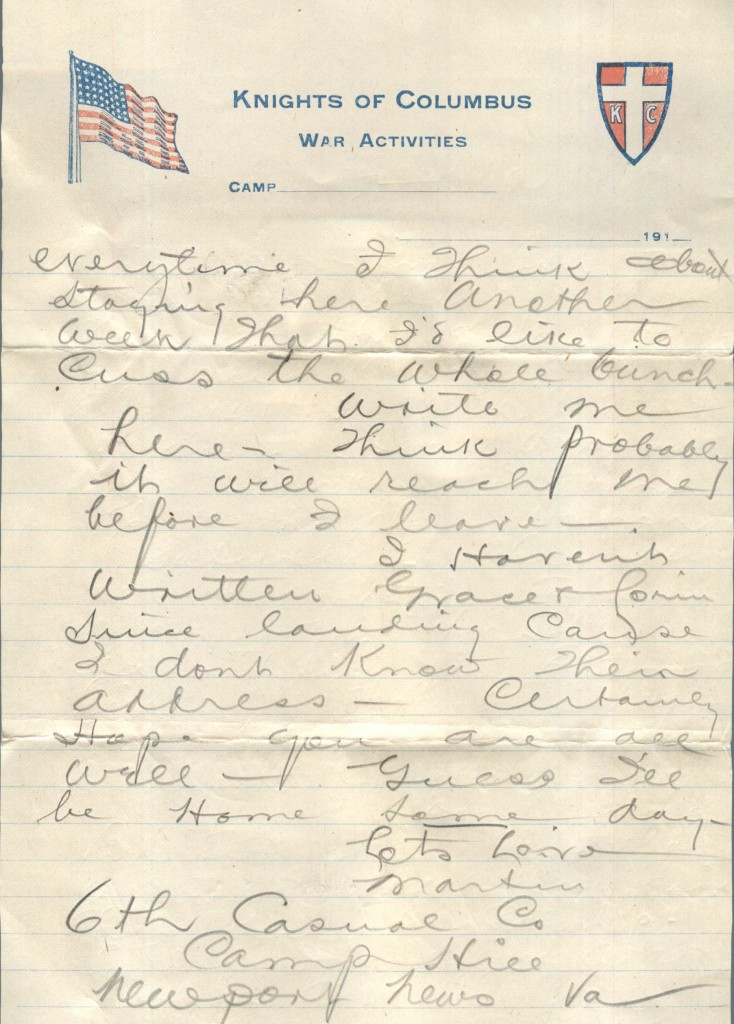 KNIGHTS OF COLUMBUS
WAR ACTIVITIES
K C
CAMP
191
everytime I think about
staying here Another
week that I'd like to
Cuss the whole bunch-
write me
here - Think probably
it will reach me
before I leave —
I Haven't
written Grace &
Since landing Cause
I dont Know Their
Address — Certainly
Hope you are all
well — Guess I'll
be Home some day -
Lots Love
Martin
6th Casual Co
Camp Hill
Newport News Va